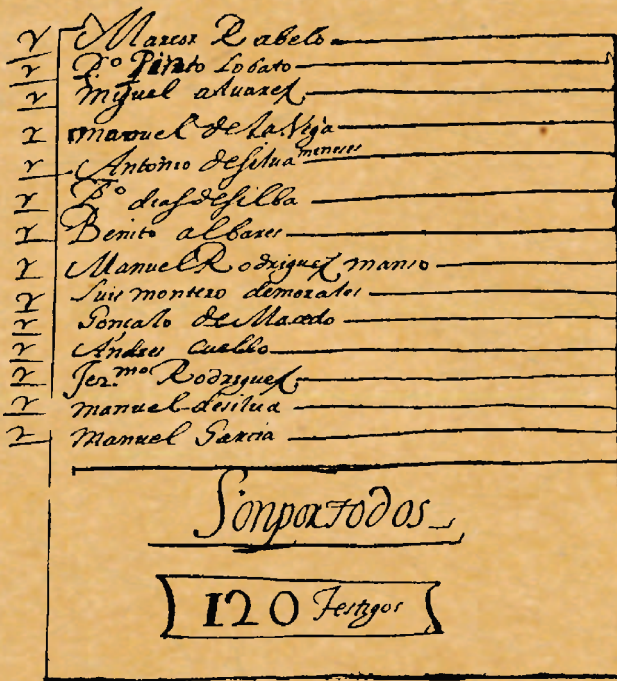 Marcos Rabelo
P.º Pinto Lobato
Miguel aluarez
manuel de la Vega
Antonio de silua meneses
P.º dias de silba
Benito albares
Manuel Rodriguez manso
Luis montero demorales
Gonçalo de Macedo
Andres cuello
Jer.mo Rodriguez
manuel de silua
Manuel Garcia
Son por todos
120 Testigos